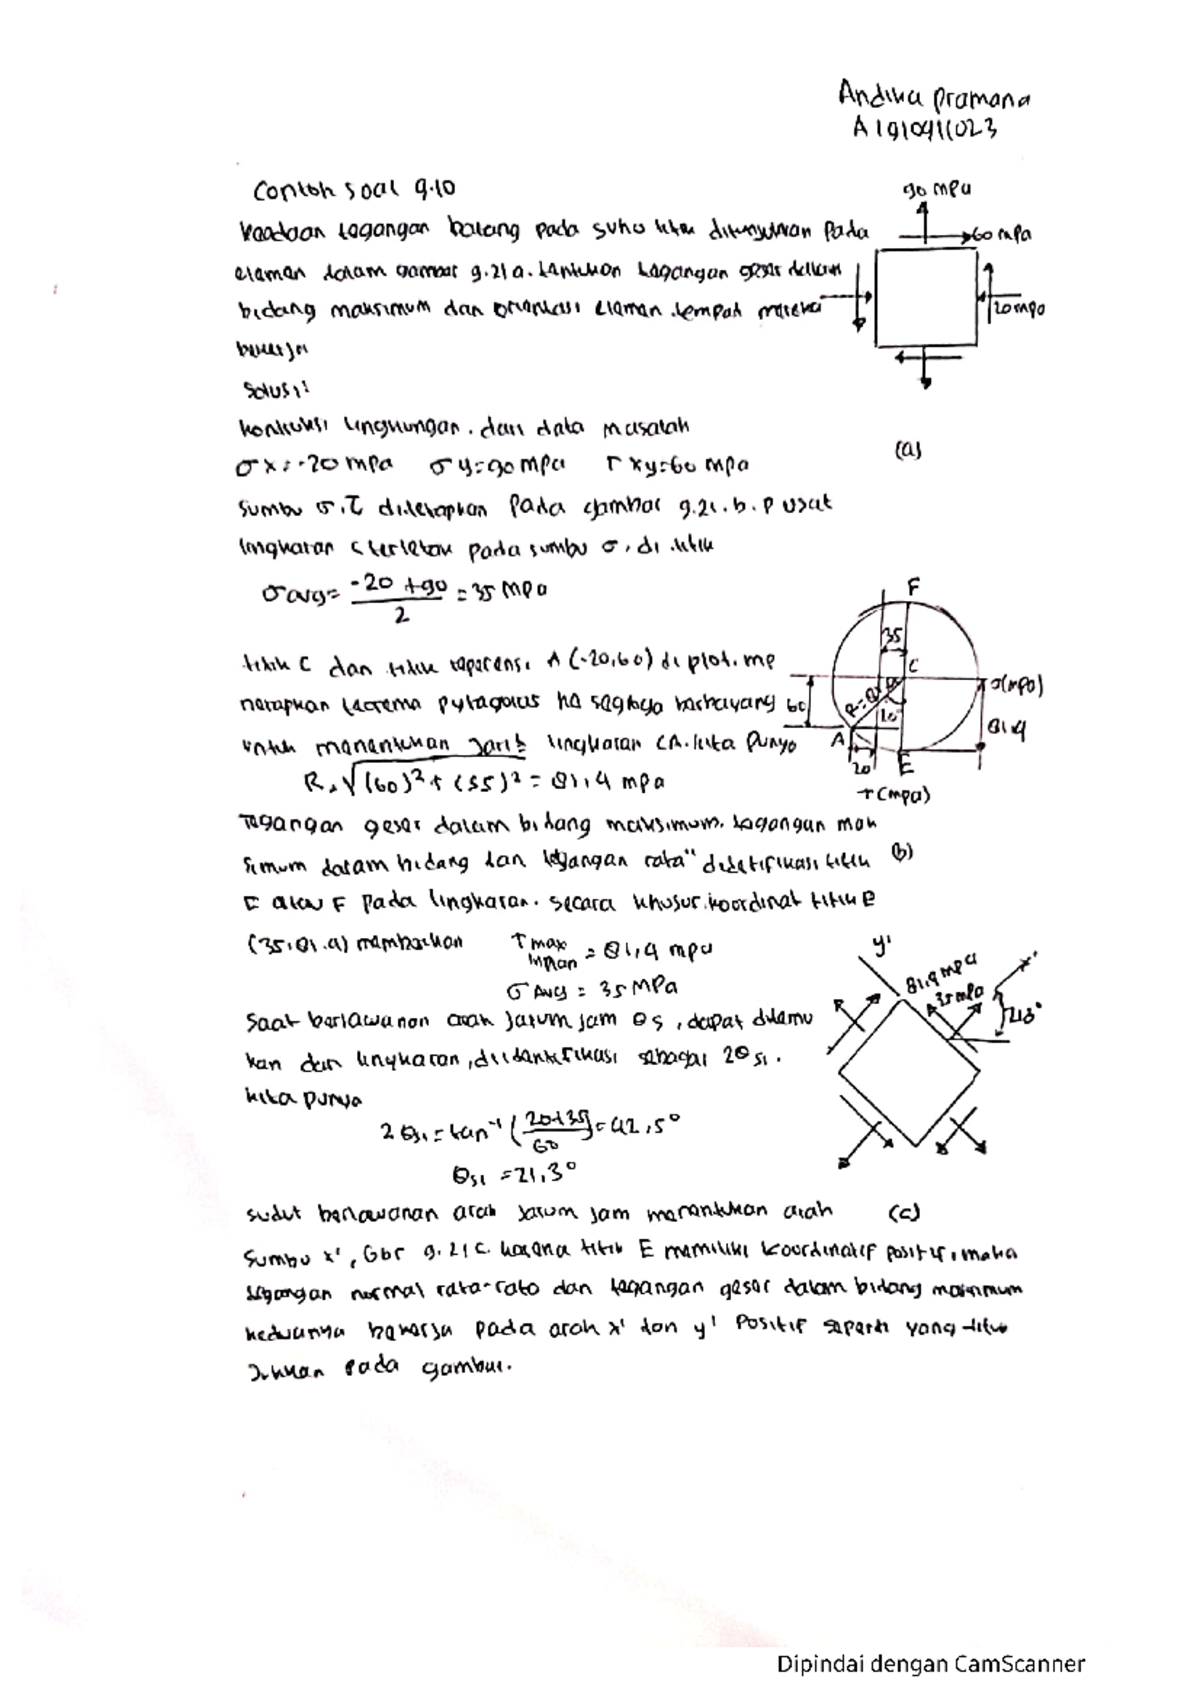 Andika Pramana
A191041023
Contoh soal 9.10
90 mpa
keadaan tegangan batang pada suhu titik ditunjukkan pada
60 mpa
elemen dalam gambar 9.21 a. tentukan tegangan geser dalam
bidang maksimum dan orientasi elemen tempat mereka
20 mpa
bekerja
Solusi:
kontruksi lingkungan. dari data masalah
(a)
σx = -20 mpa σy = 90 mpa τxy = 60 mpa
Sumbu σ, τ ditetapkan Pada gambar 9.21. b. Pusat
lingkaran C terletak pada sumbu σ, di titik
σavg = -20 + 90 / 2 = 35 MPa
F
35
titik C dan titik reperensi A (-20,60) di plot. me
C
σ(mpa)
nerapkan teorema pytagoras ke segitiga berbayang
60
81.4
untuk menentukan jarit lingkaran CA. kita Punya
A
20
E
R = √(60)² + (55)² = 81,4 mpa
τ (mpa)
Tegangan geser dalam bidang maksimum. tegangan mak
simum dalam bidang dan tegangan rata" didetifikasi titik
(b)
E atau F pada lingkaran. secara khusur. koordinat titik E
(35.81.4) memberikan
τ max in plan = 81,4 mpa
σ Avg = 35 MPa
y'
x'
81.4 mpa
35 mpa
21.3°
Saat berlawanan arah jarum jam θs, dapat ditemu
kan dari lingkaran, diidentifikasi sebagai 2θs1.
kita punya
2θs1 = tan⁻¹ (20+35 / 60) = 42,5°
θs1 = 21,3°
sudut berlawanan arah jarum jam menentukan arah
(c)
Sumbu x', Gbr 9.21 c. karena titik E memiliki koordinatif positif, maka
tegangan normal rata-rata dan tegangan geser dalam bidang maximum
keduanya bekerja pada arah x' dan y' Positif seperti yang ditun
jukkan pada gambar.
Dipindai dengan CamScanner